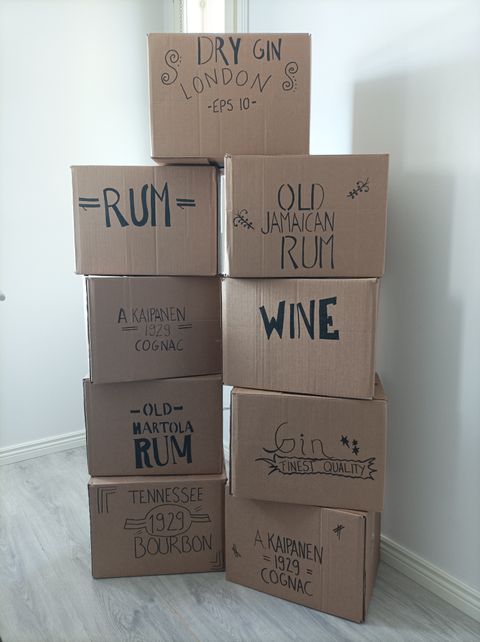 DRY GIN
LONDON
-EPS 10-
=RUM=
OLD
JAMAICAN
RUM
A KAIPANEN
=1929=
COGNAC
WINE
-OLD-
HARTOLA
RUM
Gin
FINEST QUALITY
TENNESSEE
1929
BOURBON
A.KAIPANEN
=1929=
COGNAC